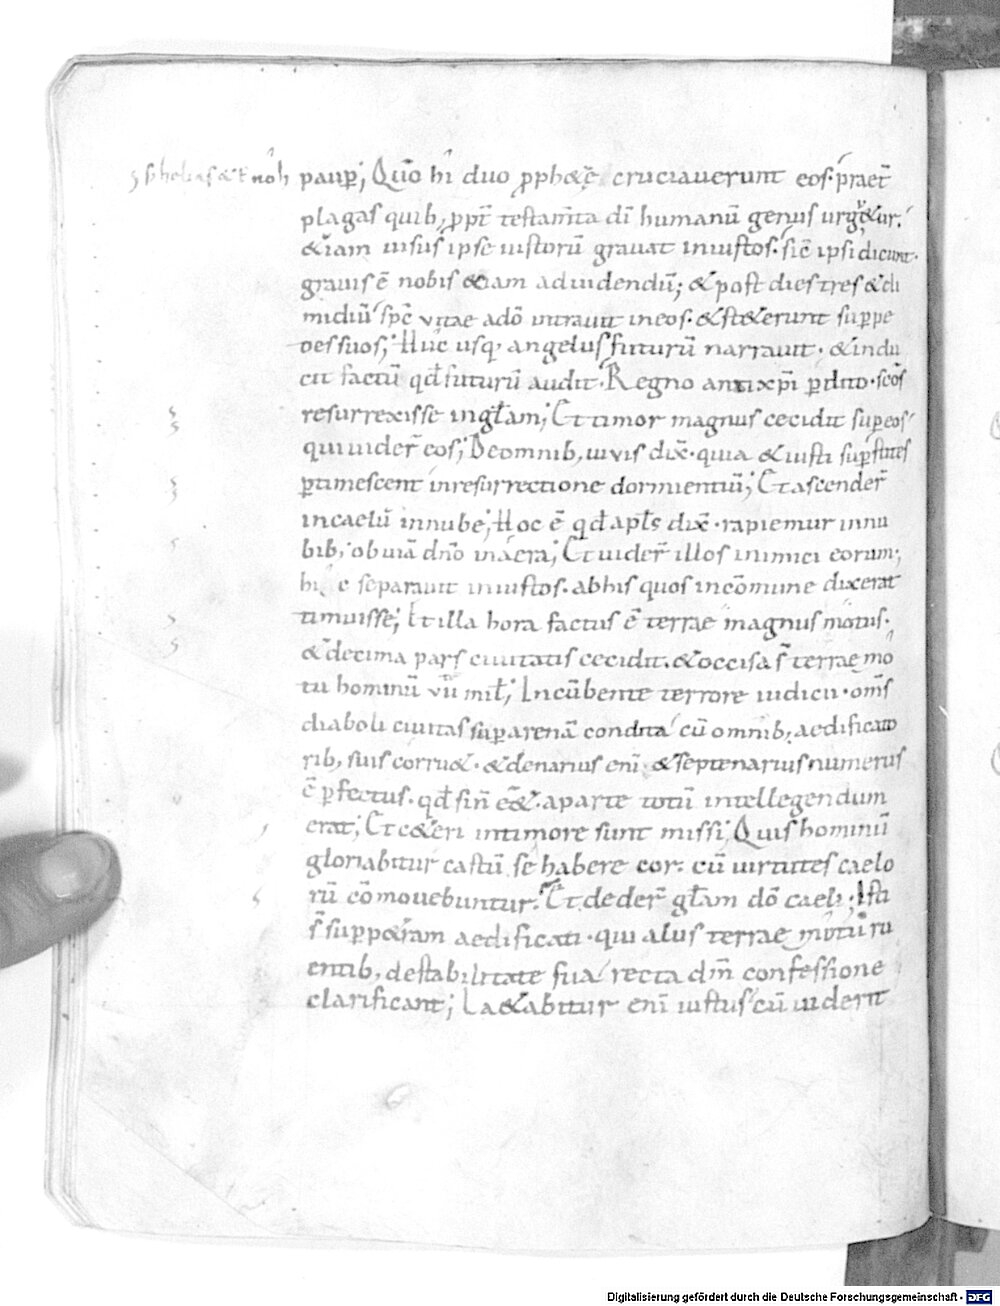 s helias & enoh paup̱; Quō hi duo ꝓph&ę̄ cruciauerunt eos· praet̄
plagas quib; ꝓpt̄ testam̄ta dī humanū genus urg&ur·
&iam uisus ipse iustorū grauat iniustos· sic̄ ipsi dicunt·
grauis ē nobis &iam aduidendū; & post dies tres & di
midiū sp̄c vitae adō intrauit in eos· & st&erunt sup̱ pe
des suos; Huc usq· angelus futurū narrauit· & indu
cit factū qd̄ futurū audit· Regno antixp̄i p̱dito· sc̄os
resurrexisse ingl̄am; Et timor magnus cecidit sup̱ eos
qui uider̄ eos; De omnib; uiuis dix̄· quia & iusti sup̱stites
p̱timescent inresurrectione dormientiū; Et ascender̄
incaelū innube; Hoc ē qd̄ apl̄s dix̄· rapiemur innu
bib; obuiā dn̄o inaera; Et uider̄ illos inimici eorum;
hic separauit iniustos· abhis quos incōmune dixerat
timuisse; Et illa hora factus ē terrae magnus motus·
& decima pars ciuitatis cecidit· & occisa s̄ terrae mo
tu hominū vii mil̄; Incūbente terrore iudicii· om̄s
diaboli ciuitas sup̱ arenā condita cū omnib; aedificato
rib; suis corru&· & denarius enī & septenarius numerus
ē p̱fectus· qd̄ sin̄ ēē&· aparte totū intellegendum
erat; Et c&eri intimore sunt missi; Quis hominū
gloriabitur castū se habere cor· cū uirtutes caelo
rū cōmouebuntur· Et deder̄ gl̄am dō caeli; Isti
s̄ sup̱ p&ram aedificati· qui alius terrae motū ru
entib; destabilitate sua recta dm̄ confessione
clarificant; La&abitur enī iustus cū uiderit
Digitalisierung gefördert durch die Deutsche Forschungsgemeinschaft - DFG